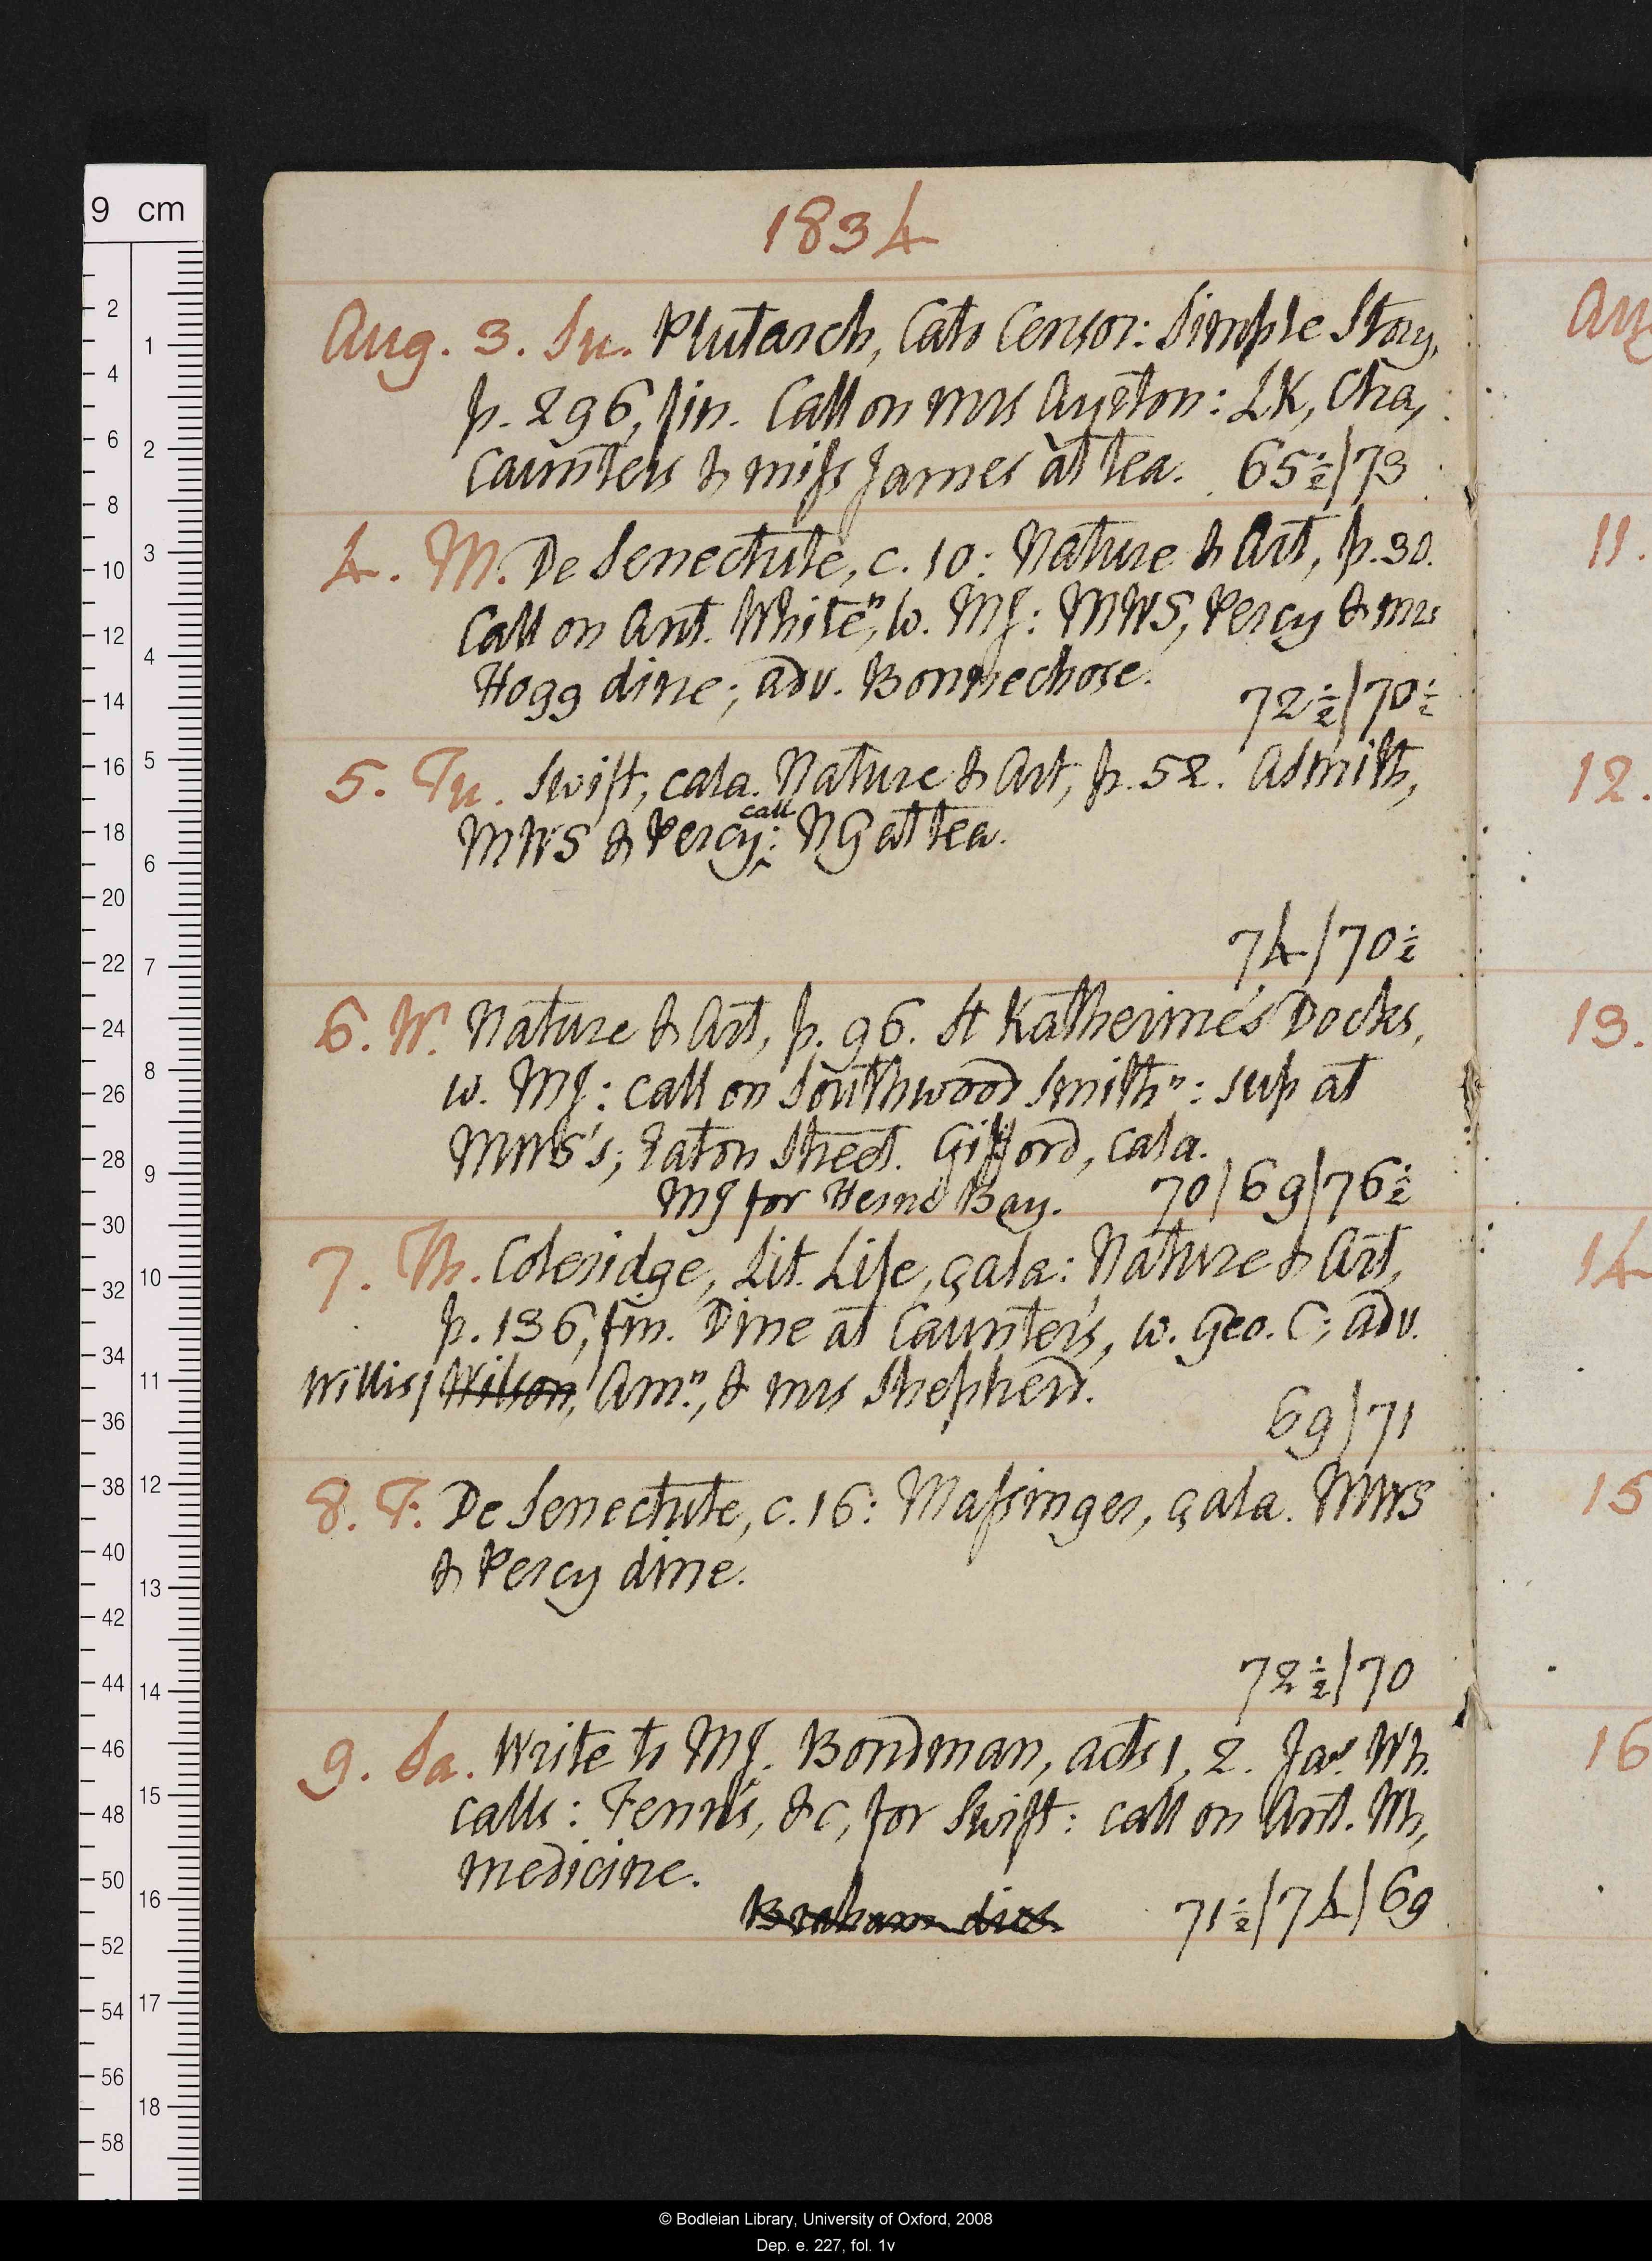 1834
Aug. 3. Su. Plutarch, Cato Censor: Simple Story,
p. 296, fin. Call on Mrs Ayrton: LK, Cha,
Caunters & Miss James at tea. 65½/73
4. M. De Senectute, c. 10: Nature & Art, p. 30.
Call on Ant. White ⁿ, w. MJ: MWS, Percy & Mrs
Hogg dine; adv. Bonnechose.
72½/70½
5. Tu. Swift, cala. Nature & Art, p. 52. Admilty,
call
MWS & Percy: NG at tea.
74/70½
6. W. Nature & Art, p. 96. St Katherine's Docks,
w. MJ: call on Southwood Smith ⁿ: sup at
MWS's; Eaton Street. Gifford, cala.
MJ for Herne Bay. 70/69/76½
7. Th. Coleridge, Lit. Life, çala: Nature & Art,
p. 136, fin. Dine at Caunter's, w. Geo. C; adv.
Willis/ Wilson, Amⁿ, & Mrs Shepherd.
69/71
8. F. De Senectute, c. 16: Massinger, çala. MWS
& Percy dine.
72½/70
9. Sa. Write to MJ. Bondman, acts 1, 2. Jas Wh.
calls: Fenn's, &c, for Swift: call on Ant. Wh,
medicine.
Braham dies 71½/74/69
Aug
11.
12.
13.
14
15
16
9 cm
2
4
6
8
10
12
14
16
18
20
22
24
26
28
30
32
34
36
38
40
42
44
46
48
50
52
54
56
58
1
2
3
4
5
6
7
8
9
10
11
12
13
14
15
16
17
18
© Bodleian Library, University of Oxford, 2008
Dep. e. 227, fol. 1v